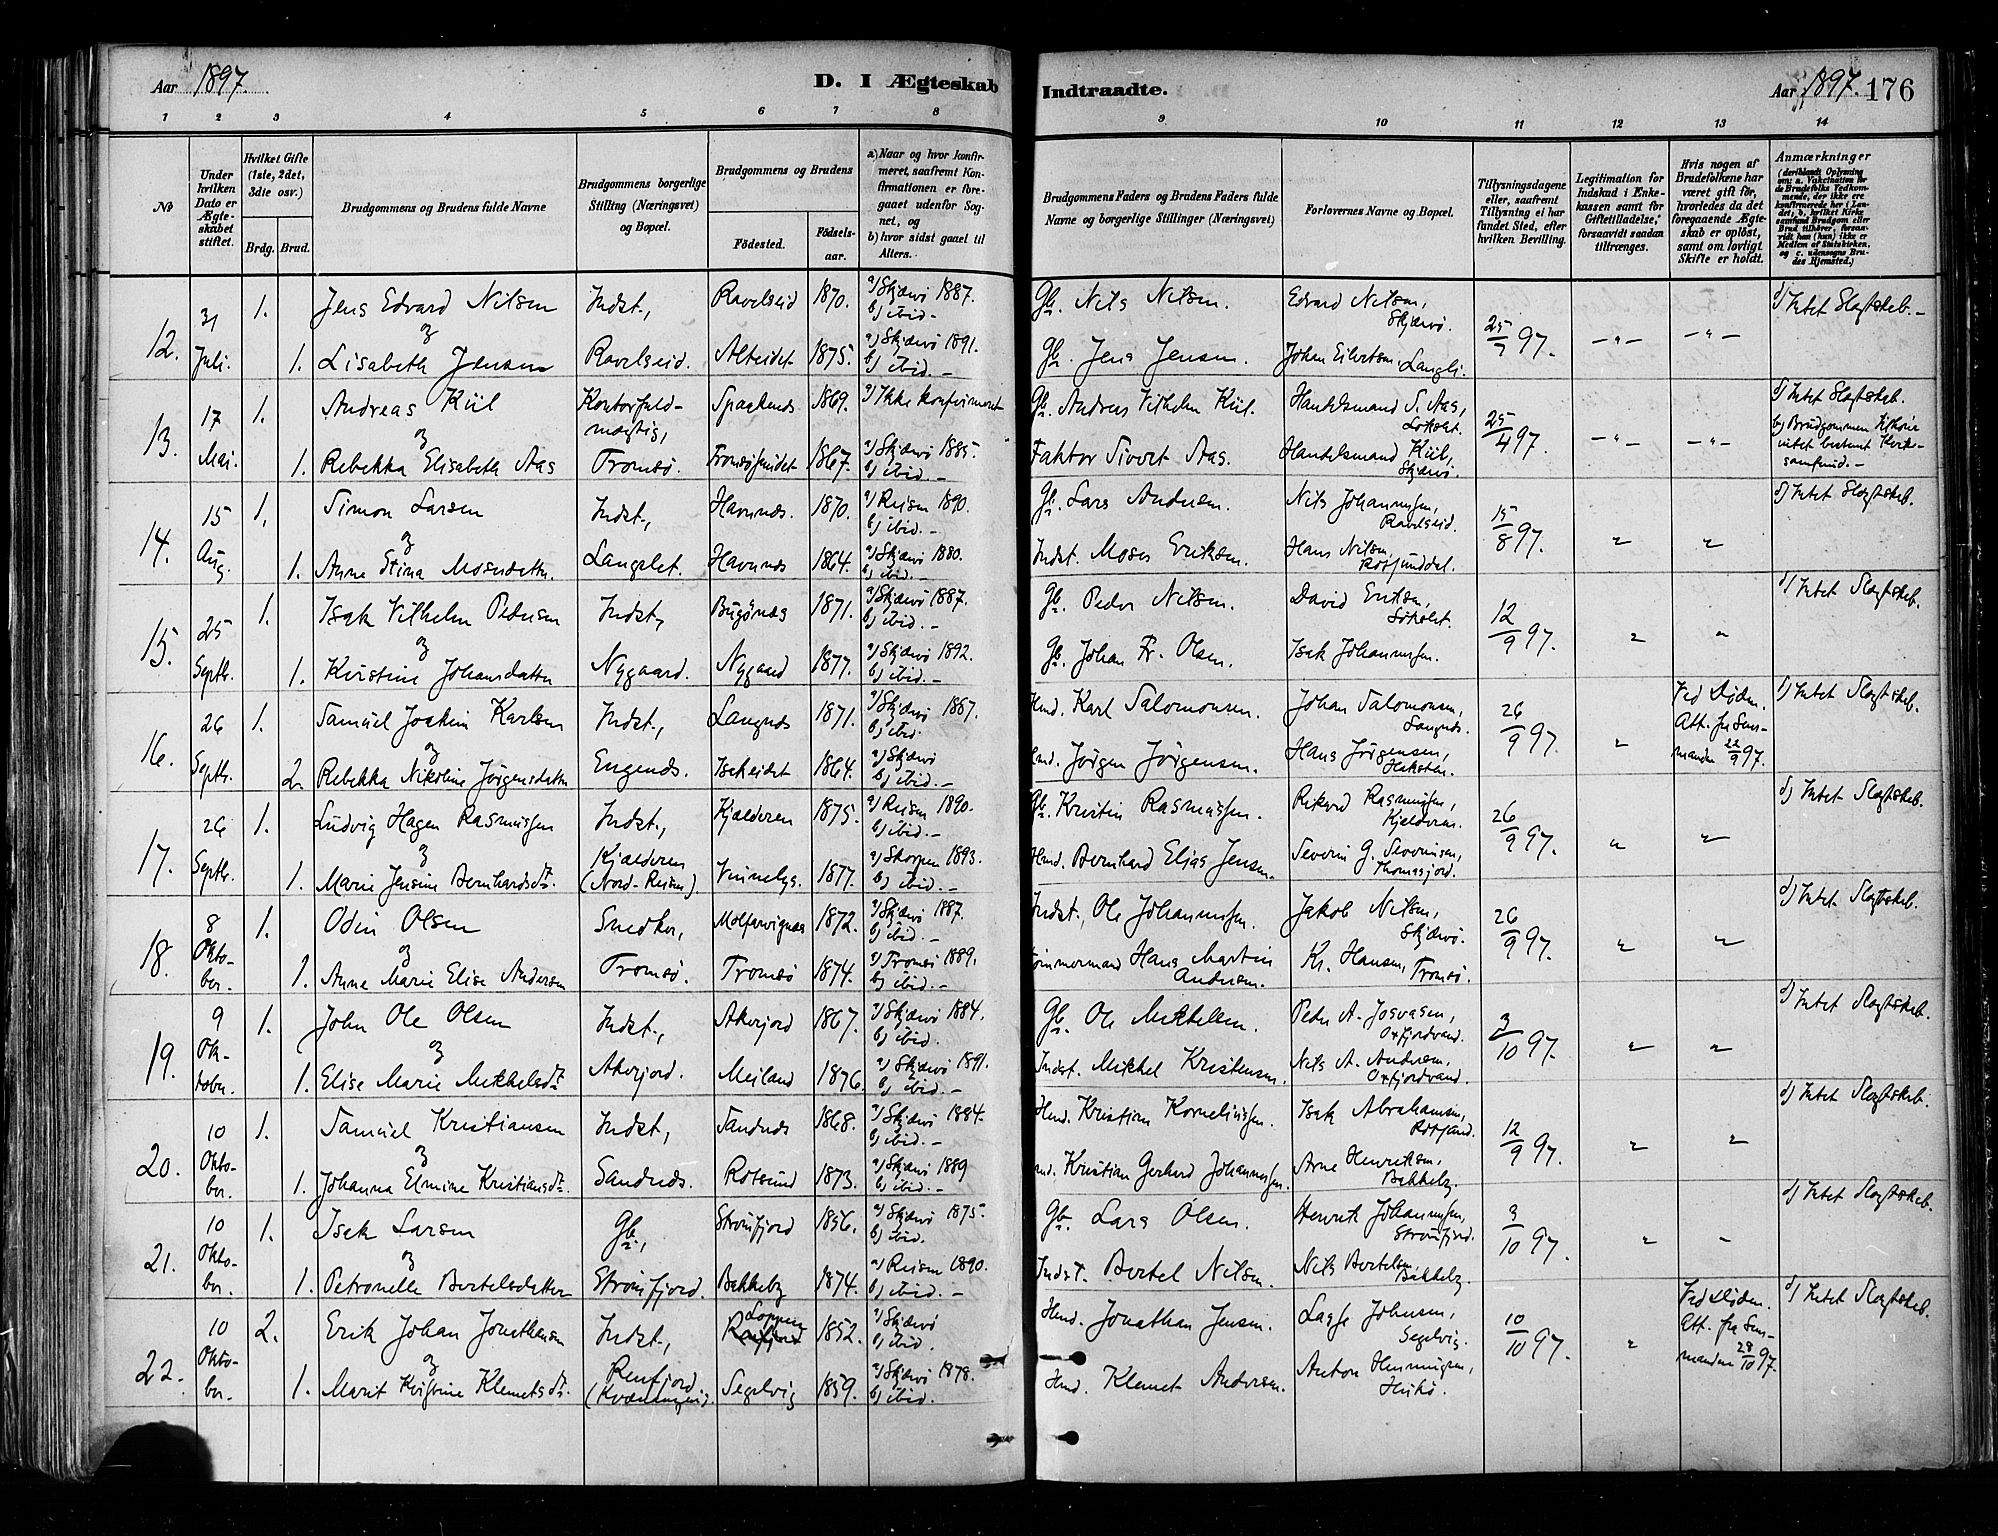 Aar 1897.
D. I Ægteskab
Indtraadte.
Aar 1897. 176
1 2 3 4 5 6 7 8 9 10 11 12 13 14
No
Under hvilken Dato er Ægteskabet stiftet.
Hvilket Gifte (1ste, 2det, 3die osv.)
Brdg. Brud.
Brudgommens og Brudens fulde Navne
Brudgommens borgerlige Stilling (Næringsvei) og Bopæl.
Brudgommens og Brudens
Födested.
Födsels-aar.
a) Naar og hvor konfirmeret, saafremt Konfirmationen er foregaaet udenfor Sognet, og
b) hvor sidst gaaet til Alters.
Brudgommens Faders og Brudens Faders fulde Navne og borgerlige Stillinger (Næringsvei)
Forlovernes Navne og Bopæl.
Tillysningsdagene eller, saafremt Tillysning ei har fundet Sted, efter hvilken Bevilling.
Legitimation for Indskud i Ænkekassen samt for Giftetilladelse, forsaavidt saadan tiltrænges.
Hvis nogen af Brudefolkene har været gift før, hvorledes da det foregaaende Ægteskab er oplöst, samt om lovligt Skifte er holdt.
Anmærkninger
(deriblandt Oplysning om: a. Vaksination for de Brudefolks Vedkommende, der ikke ere konfirmerede her i Landet; b. hvilket Kirkesamfund Brudgom eller Brud tilhörer, forsaavidt han (hun) ikke er Medlem af Statskirken, og c. udensogns Brudes Hjemsted.)
12. 31 Juli. 1. Jens Edvard Nilsen Indst., Ravelseid 1870. a) Skjærvö 1887. b) ibid.- Gb. Nils Nilsen. Edvard Nilsen, Skjærvö. 25/7 97. -"- -"- d) Intet Slagtskab.-
og
1. Lisabeth Jensen Ravelseid. Alteidet 1875. a) Skjærvö 1891. b) ibid.- Gb. Jens Jensen. Johan Eilertsen, Langli.
13. 17 Mai. 1. Andreas Kiil Kontorfuldmægtig, 1869. a) Ikke konfirmeret Gb. Andreas Vilhelm Kiil. Handelsmand S. Aas, Lökslet. 25/4 97. -"- -"- d) Intet Slagtskab.
og
1. Rebekka Elisabeth Aas Tromsö. Tromsösundet 1867. a) Skjærvö 1885. b) ibid.- Faktor Sivert Aas. Handelsmand Kiil, Skjærvö. b) Brudgommen tilhörer intet bestemt Kirkesamfund.-
14. 15 Aug. 1. Simon Larsen Indst., Havnnes. 1870. a) Reisen 1890. b) ibid.- Gb. Lars Andersen. Nils Johannessen, Ravelseid. 15/8 97. " " d) Intet Slagtskab.
og
1. Anne Stina Mosesdatter. Langslet. Havnnes 1864. a) Skjærvö 1880. b) ibid.- Indst. Moses Eriksen. Hans Nilsen, Rotsunddal.
15. 25 Septbr. 1. Isak Vilhelm Pedersen Indst., Bugönæs 1871. a) Skjærvö 1887. b) ibid.- Gb. Peder Nilsen. David Eriksen, Lökslet. 12/9 97. " " d) Intet Slagtskab.
og
1. Kirstine Johansdatter Nygaard. Nygaard 1877. a) Skjærvö 1892. b) ibid.- Gb. Johan Fr. Olsen. Isak Johannessen.
16. 26 Septbr. 1. Samuel Joakim Karlsen Indst., Langnes 1871. a) Skjærvö 1887. b) ibid. Hmd. Karl Salomonsen. Johan Salomonsen, Langnes. 26/9 97. " Ved Döden. Att. fra Lensmanden 22/9 97. d) Intet Slagtskab.
og
2. Rebekka Nikoline Jörgensdatter Engenes. Iskeidet 1864. a) Skjærvö b) ibid.- Hmd. Jörgen Jörgensen. Hans Jörgensen, Haksten.
17. 26 Septbr. 1. Ludvig Hagen Rasmussen Indst., Kjælderen 1875. a) Reisen 1890. b) ibid.- Gb. Kristin Rasmussen. Rikard Rasmussen, Kjælderen. 26/9 97. " " d) Intet Slagtskab.
og
1. Marie Jensine Bernhardsdt. Kjælderen (Nord-Reisen). Vinnelys. 1877. a) Skorpen 1893. b) ibid.- Hmd. Bernhard Elias Jensen. Severin G. Severinsen, Thomasjord.
18. 8 Oktober. 1. Odin Olsen Snedker, Molfarvignæs 1872. a) Skjærvö 1887. b) ibid.- Indst. Ole Johannessen. Jakob Nilsen, Skjærvö. 26/9 97. " " d) Intet Slagtskab.
og
1. Anne Marie Elise Andersen Tromsö. Tromsö 1874. a) Tromsö 1889. b) ibid.- Tömmermand Hans Martin Andersen. Kr. Hansen, Tromsö
19. 9 Oktober. 1. John Ole Olsen Indst., Akerjord 1867. a) Skjærvö 1884. b) ibid. Gb. Ole Mikkelsen. Peder A. Josvasen, Oxfjordvand. 3/10 97. " " d) Intet Slagtskab.
og
1. Elise Marie Mikkelsdt. Akerjord. Meiland 1876. a) Skjærvö 1891. b) ibid.- Indst. Mikkel Kristensen. Nils A. Andersen, Oxfjordvand.
20. 10 Oktober. 1. Samuel Kristiansen Indst., Sandnes 1868. a) Skjærvö 1884. b) ibid.- Hmd. Kristian Korneliussen. Isak Abrahamsen, Rotsund. 12/9 97. " " d) Intet Slagtskab.
og
1. Johanna Elmine Kristiansdt. Sandnes. Rotsund 1873. a) Skjærvö 1889 b) ibid.- Hmd. Kristian Gerhard Johannessen. Arne Henriksen, Bakkeby.
21. 10 Oktober. 1. Isak Larsen Gb., Straumfjord 1856. a) Skjærvö 1875. b) ibid. Gb. Lars Olsen. Henrik Johannessen, Straumfjord. 3/10 97. " " d) Intet Slagtskab.
og
1. Petronelle Bertelsdatter Straumfjord. Bakkeby 1874. a) Reisen 1890. b) ibid.- Indst. Bertel Nilsen. Nils Bertelsen, Bakkeby.
22. 10 Oktober. 2. Erik Johan Jonathansen Indst., Loppen 1852. a) Skjærvö b) ibid. Hmd. Jonathan Jensen. Lasse Johnsen, Segelvig. 10/10 97. " Ved Döden. Att. fra Lensmanden 28/10 97. d) Intet Slagtskab.
og
1. Marit Kristine Klemetsdt. Renfjord (Kvænangen). Segelvig 1859. a) Skjærvö 1878. b) ibid. Hmd. Klemet Andersen. Anton Henningsen, Haukö.